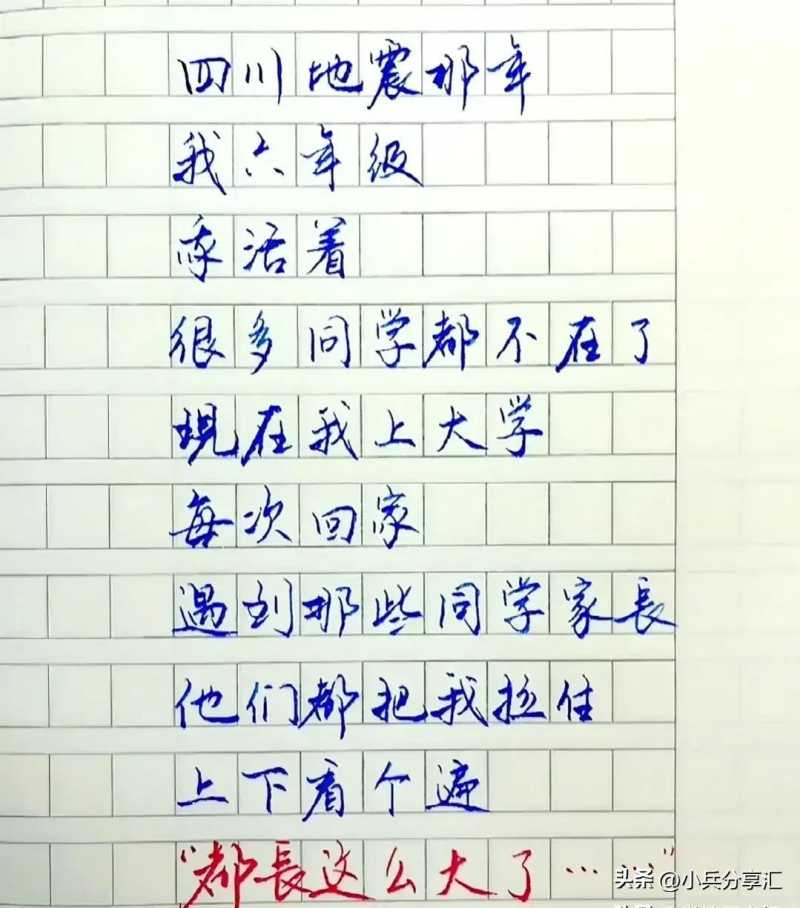 四川地震那年
我六年级
我活着
很多同学都不在了
现在我上大学
每次回家
遇到那些同学家長
他们都把我拉住
上下看个遍
“都長这么大了……”
头条 @小兵分享汇